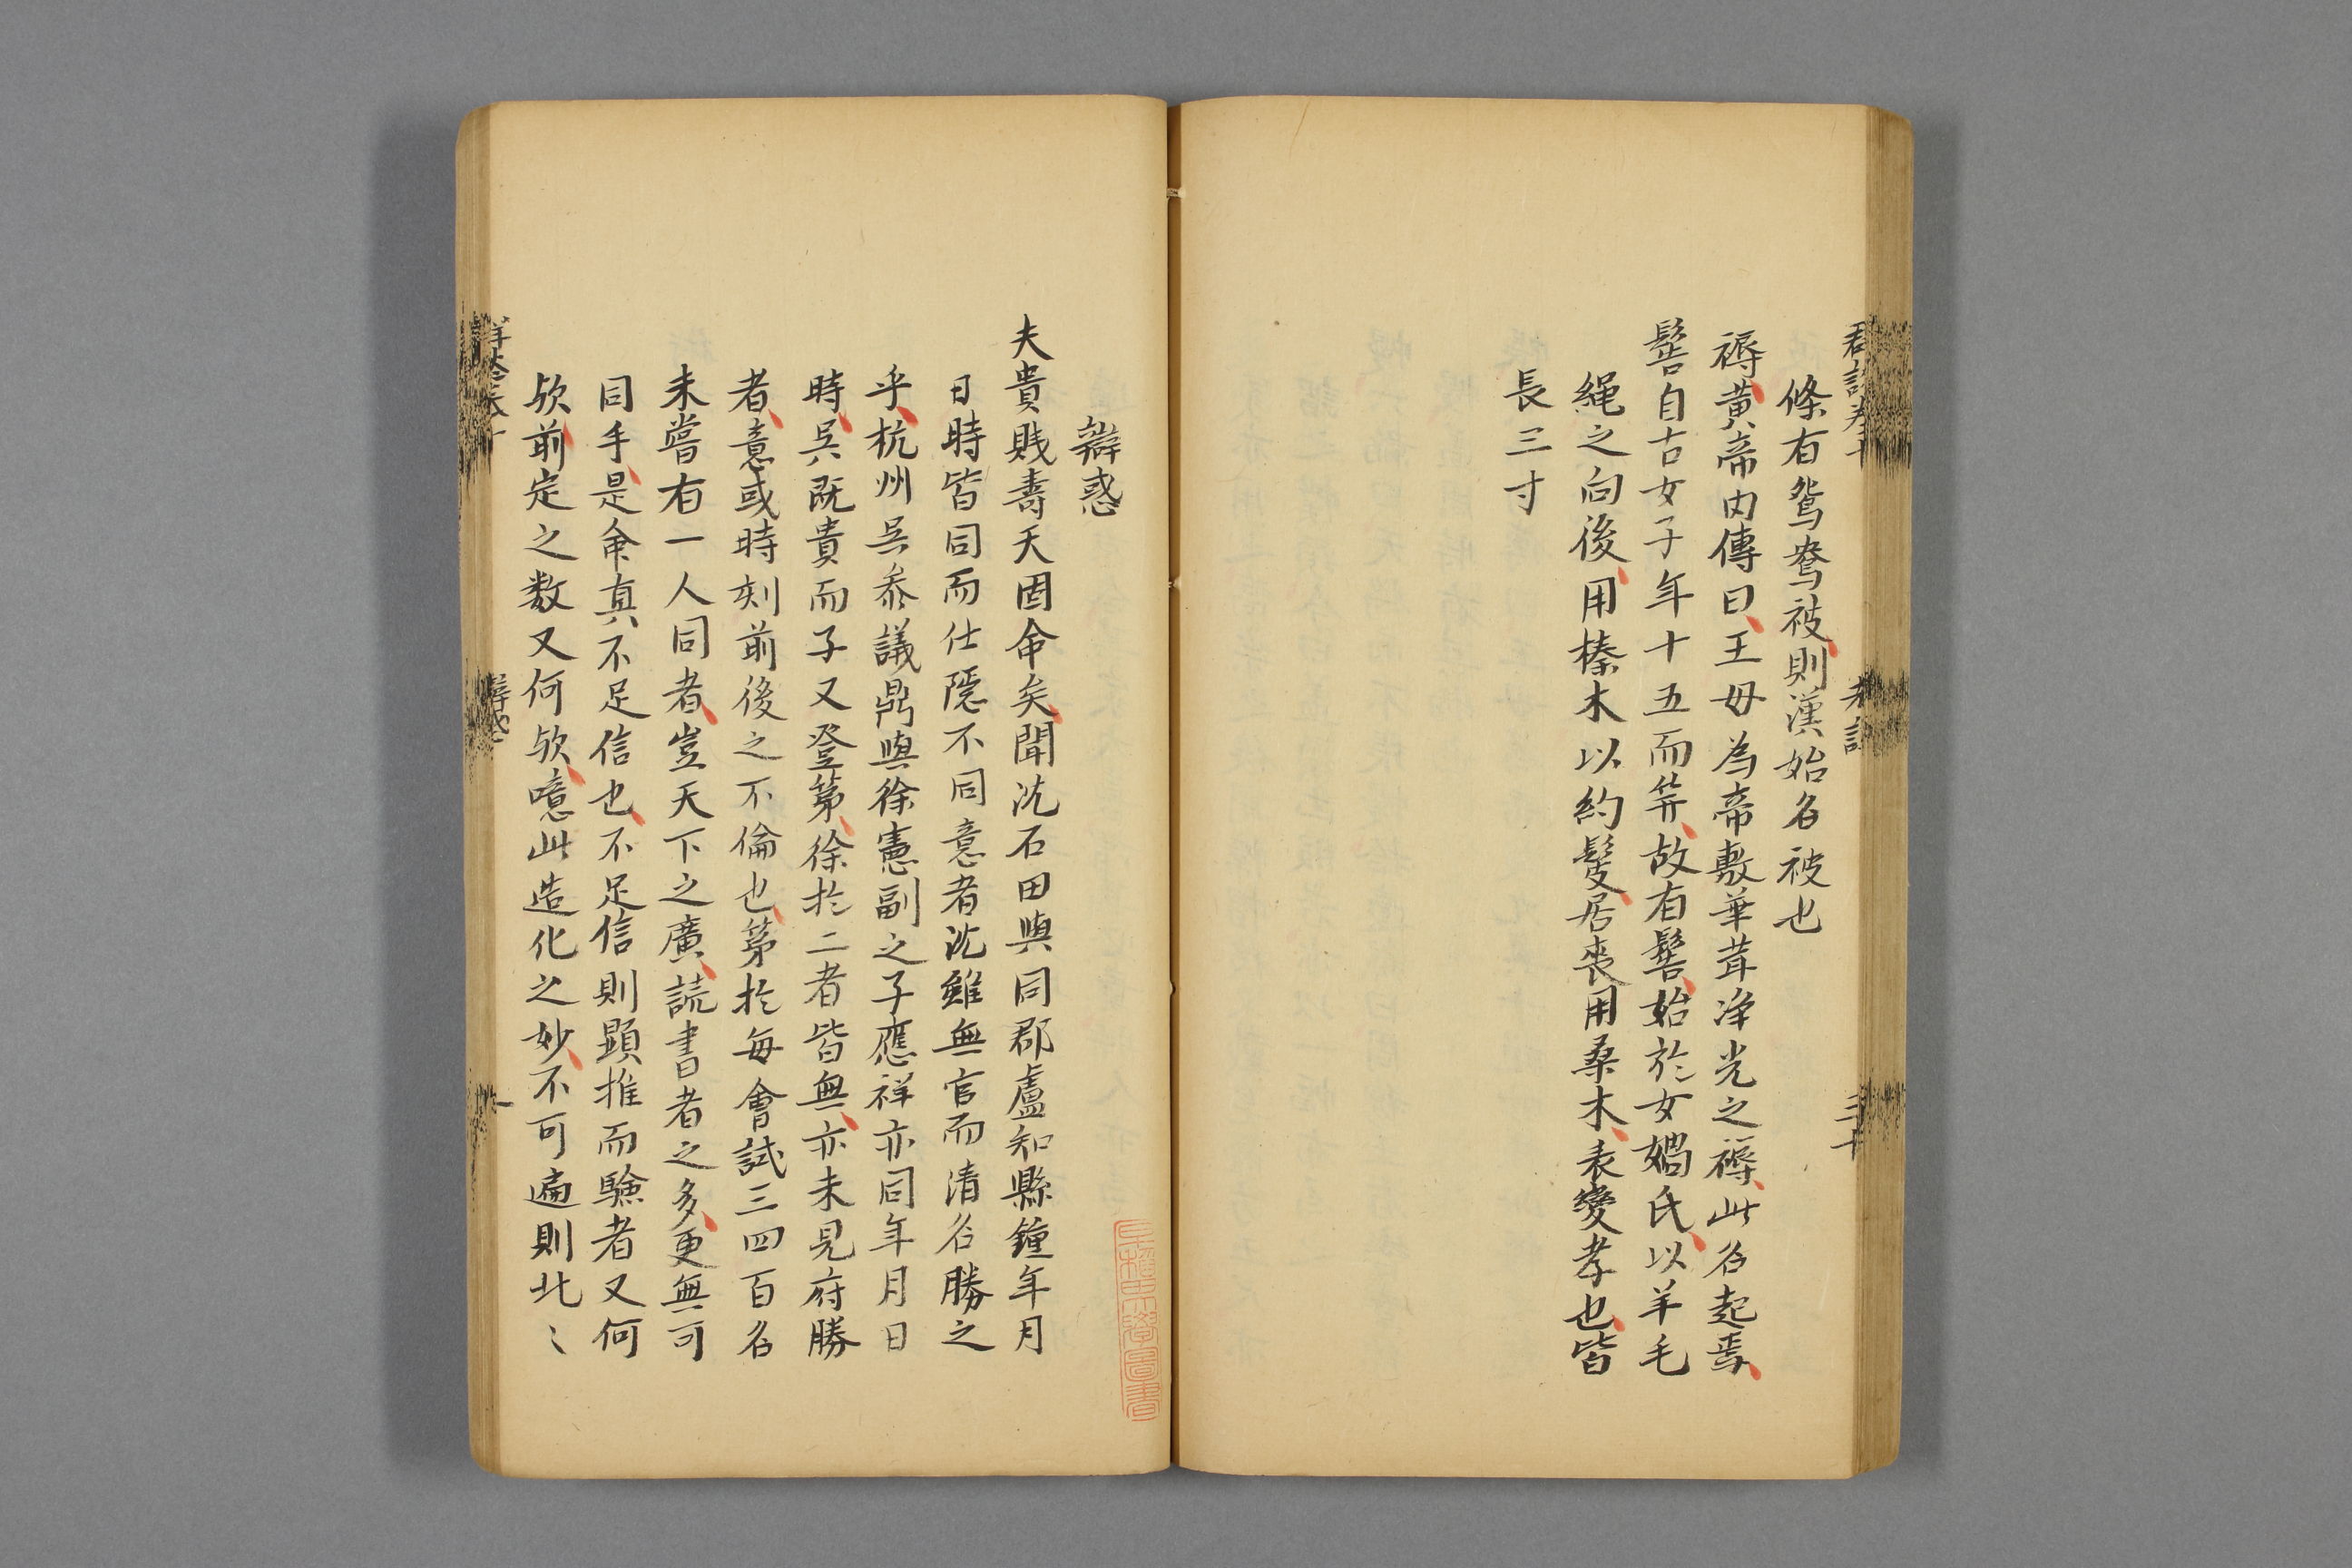 條有鴛鴦被則漢始名被也
褥黄帝内傳曰王母為帝敷華茸淨光之褥此名起焉
髻自古女子年十五而笄故有髻始於女媧氏以羊毛
繩之向後用榛木以約髮居喪用桑木表變孝也皆
長三寸
辯惑
夫貴賎壽夭固命矣聞沈石田與同郡盧知縣鐘年月
日時皆同而仕隱不同意者沈雖無官而清名勝之
乎杭州吳叅議鼎與徐憲副之子應祥亦同年月日
時吳既貴而子又登第徐於二者皆無亦未見府勝
者意或時刻前後之不倫也第於每會試三四百名
未嘗有一人同者豈天下之廣読書者之多更無可
同手是命真不足信也不足信則顕推而驗者又何
欤前定之数又何欤噫此造化之妙不可遍則北〻